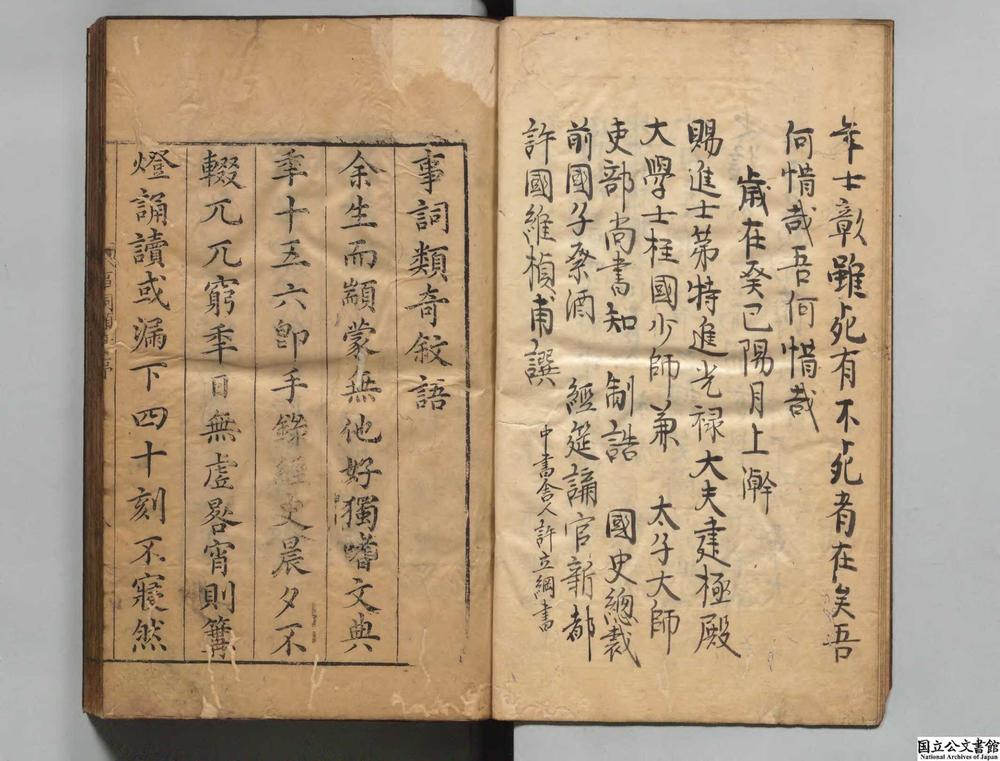 年士彰雖死有不死者在矣吾
何惜哉吾何惜哉
歲在癸巳陽月上澣
賜進士第特進光祿大夫建極殿
大學士柱國少師兼 太子太師
吏部尚書知 制誥 國史總裁
前國子祭酒 經筵講官新都
許國維楨甫譔
中書舍人許立綱書
事詞類奇敘語
余生而顓蒙無他好獨嗜文典
年十五六卽手錄經史晨夕不
輟兀兀窮年日無虛晷宵則篝
燈誦讀或漏下四十刻不寢然
国立公文書館
National Archives of Japan